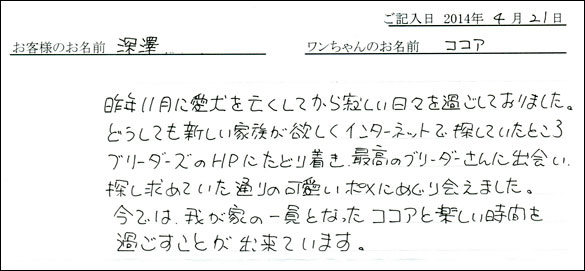 ご記入日 2014年 4月 21日
お客様のお名前 深澤 ワンちゃんのお名前 ココア
昨年11月に愛犬を亡くしてから寂しい日々を過ごしておりました。
どうしても新しい家族が欲しくインターネットで探していたところ
ブリーダーズのHPにたどり着き、最高のブリーダーさんに出会い、
探し求めていた通りの可愛いポメにめぐり会えました。
今では、我が家の一員となったココアと楽しい時間を
過ごすことが出来ています。